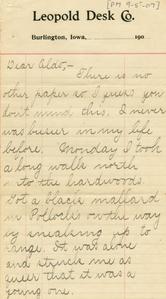 [PM 9-5-07]
Leopold Desk Co.
Burlington, Iowa, 190
Dear Clao,-
There is no
other paper so I guess you
don't mind this. I never
was busier in my life
before. Monday I took
a long walk north
into the hardwoods.
Got a black mallard
in Pollocks on the way
by sneaking up to
range. It was alone
and struck me as
queer that it was a
young one.